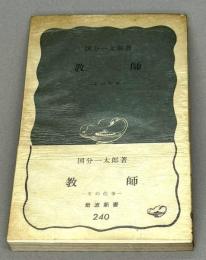 国分一太郎著
教 師
―その仕事―
国分一太郎著
教 師
―その仕事―
岩波新書
240